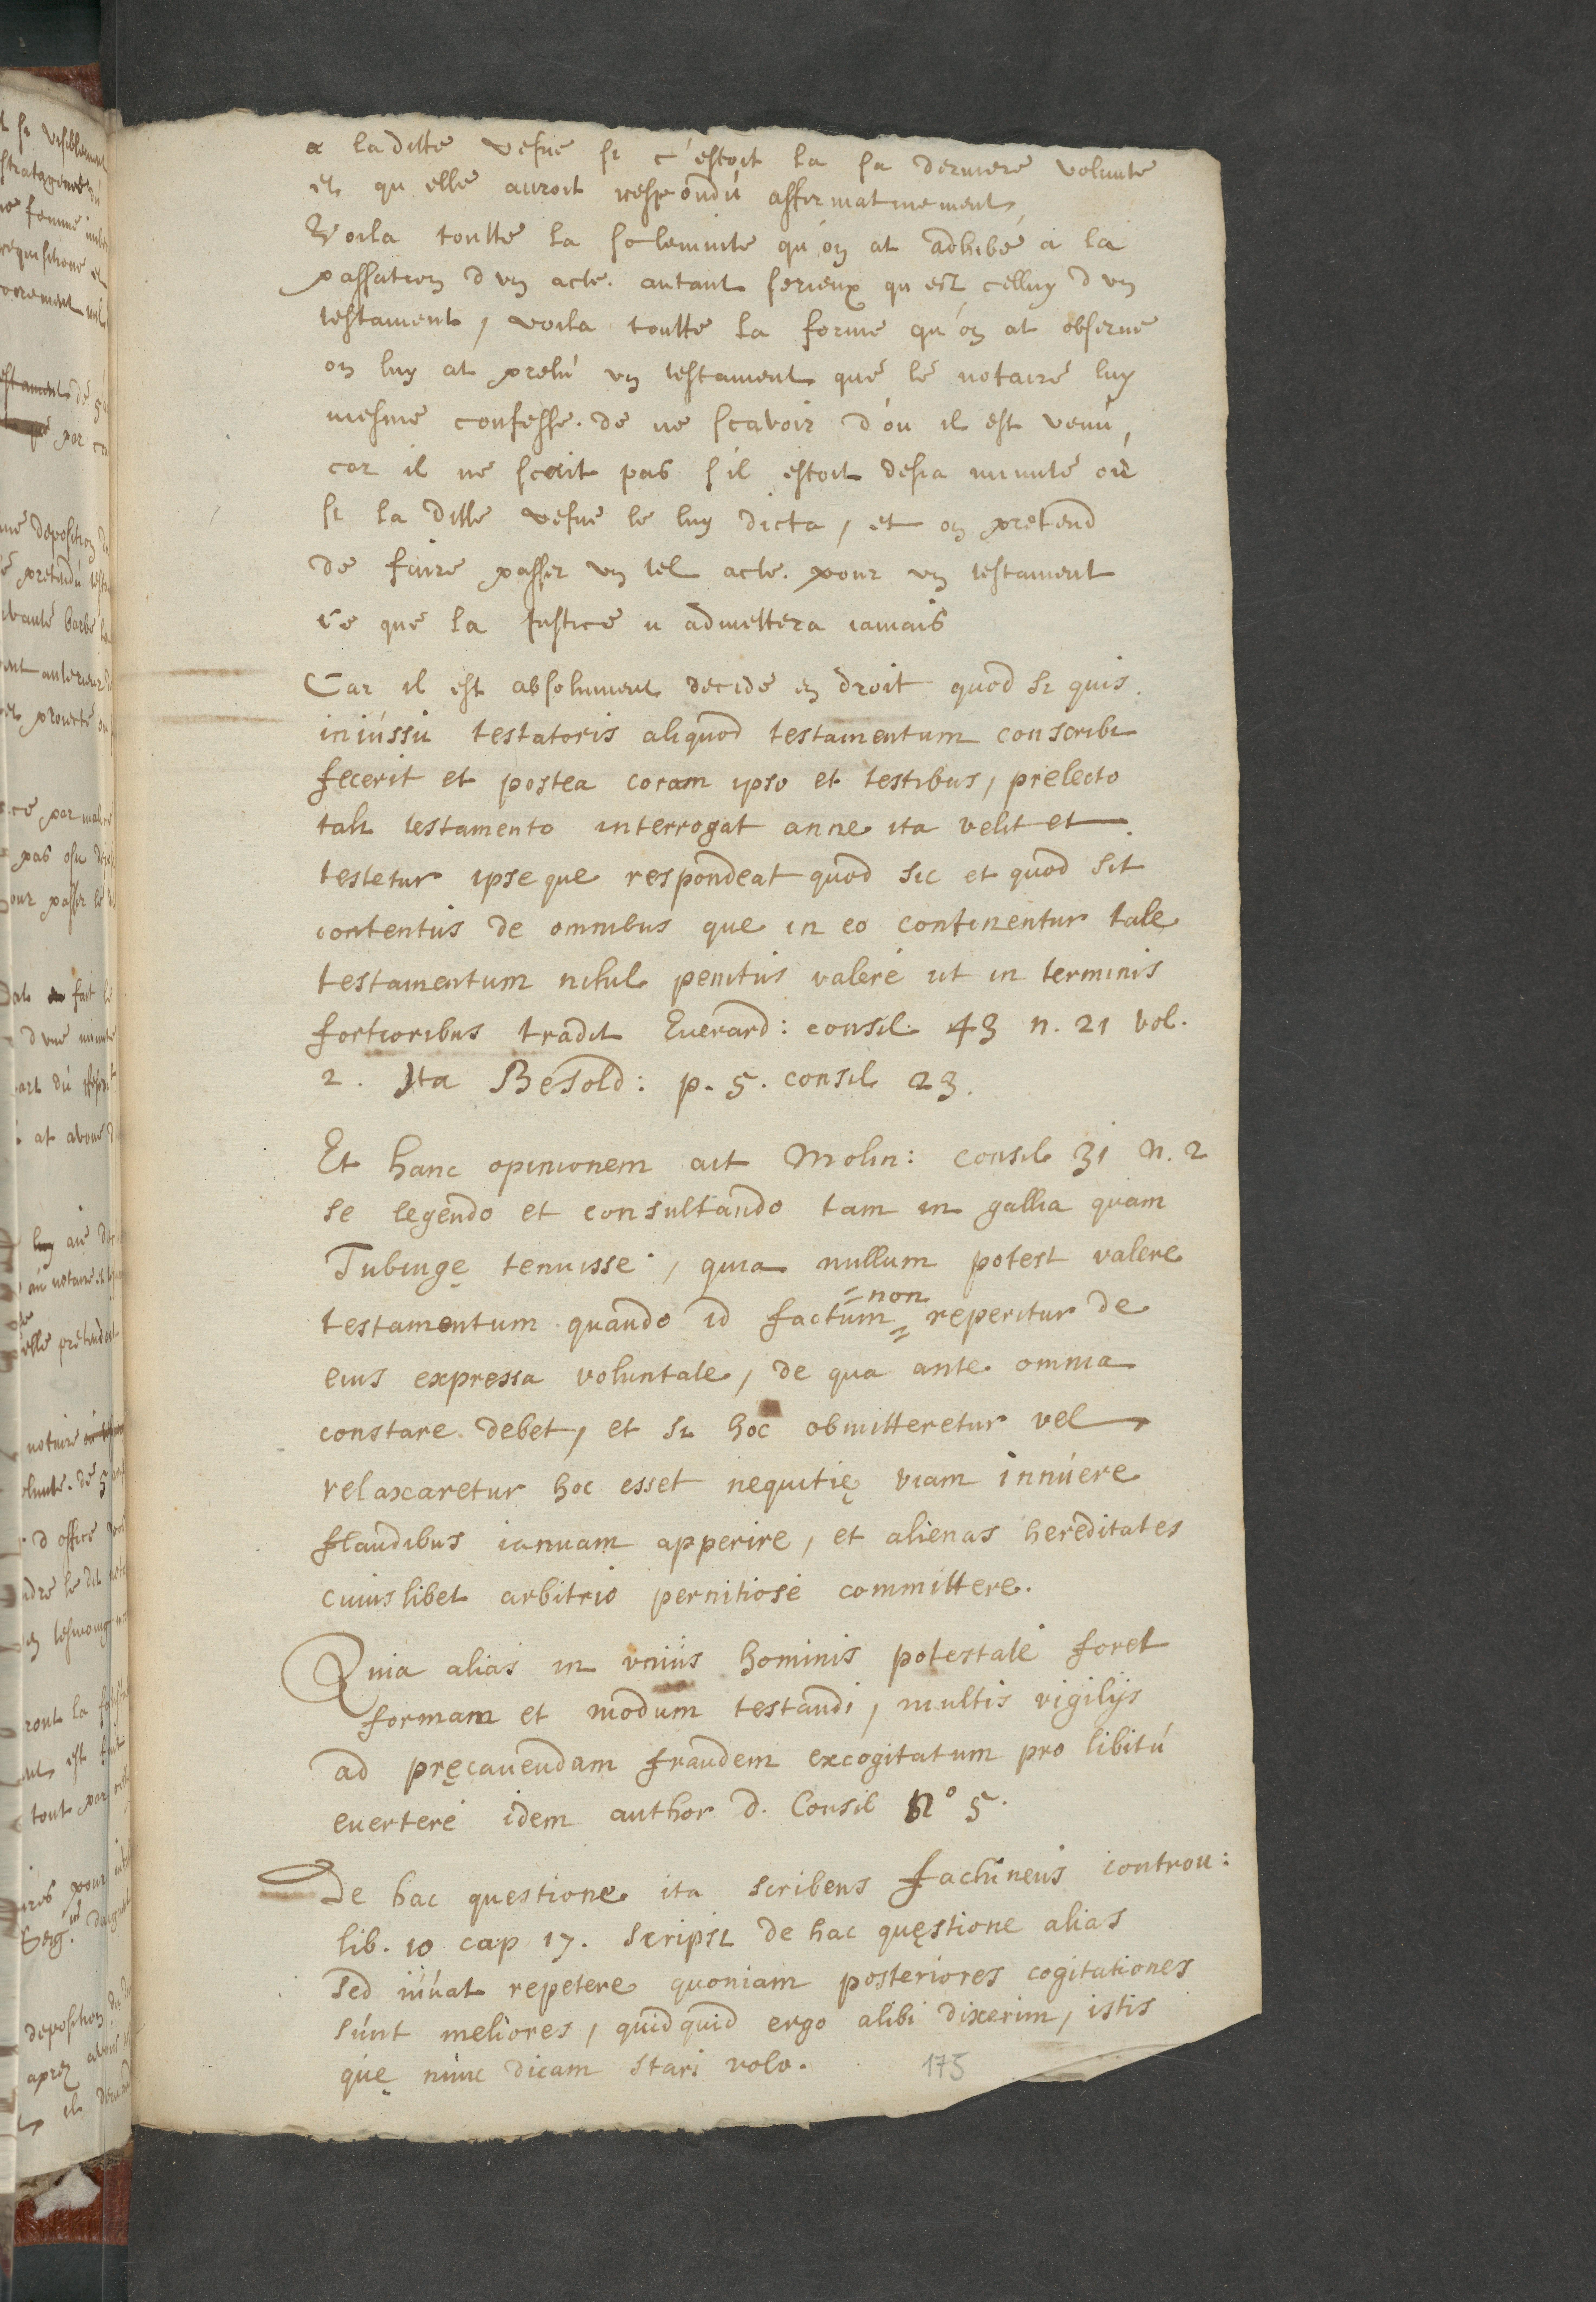 a laditte vefue si c'estoit la sa derniere volunte
et qu elle auroit respondu affirmatiuement
Voila toutte la solemnite qu'on at adhibé a la
passation d un acte. autant serieux qu est celluy d un
testament, voila toutte la forme qu'on at obserue
on luy at prelu un testament que le notaire luy
mesme confesse. de ne scavoir d'ou il est venu,
car il ne scait pas s'il estoit desia minuté ou
si la ditte vefue le luy dicta, et on pretend
de faire passer un tel acte. pour un testament
ce que la Justice n admettera iamais
Car il est absolument decidé en droit quod si quis
iniussu testatoris aliquod testamentum conscribi
fecerit et postea coram ipso et testibus, prelecto
tali testamento interrogat anne ita velit et
testetur ipse que respondeat quod sic et quod sit
contentus de omnibus que in eo continentur tale
testamentum nihil penitus valere ut in terminis
fortioribus tradit Euerard: consil. 43 n. 21 vol.
2. Ita Besold: p. 5. consil 23.
Et hanc opinionem ait Molin: consil 31 n. 2
se legendo et consultando tam in gallia quam
Tubingę tenuisse, quia nullum potest valere
=non
testamentum quando id factum = reperitur de
eius expressa voluntate, de qua ante omnia
constare debet, et si hoc obmitteretur vel
relaxaretur hoc esset nequitię viam innuere
flaudibus ianuam apperire, et alienas hereditates
cuius libet arbitrio pernitiose committere.
Quia alias in unius hominis potestate foret
formam et modum testandi, multis vigilijs
ad pręcauendam fraudem excogitatum pro libitu
euertere idem author d. Consil N° 5.
De hac questione ita scribens fachineus controu:
lib. 10 cap 17. scripsi de hac quęstione alias
sed iuuat repetere quoniam posteriores cogitationes
sunt meliores, quidquid ergo alibi dixerim, istis
quę nunc dicam stari volo.
175